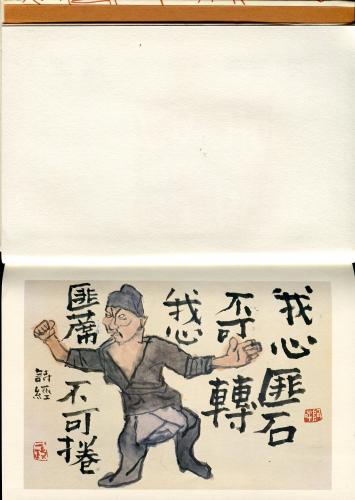 我心匪石
不可轉
我心
匪蓆
不可捲
詩經